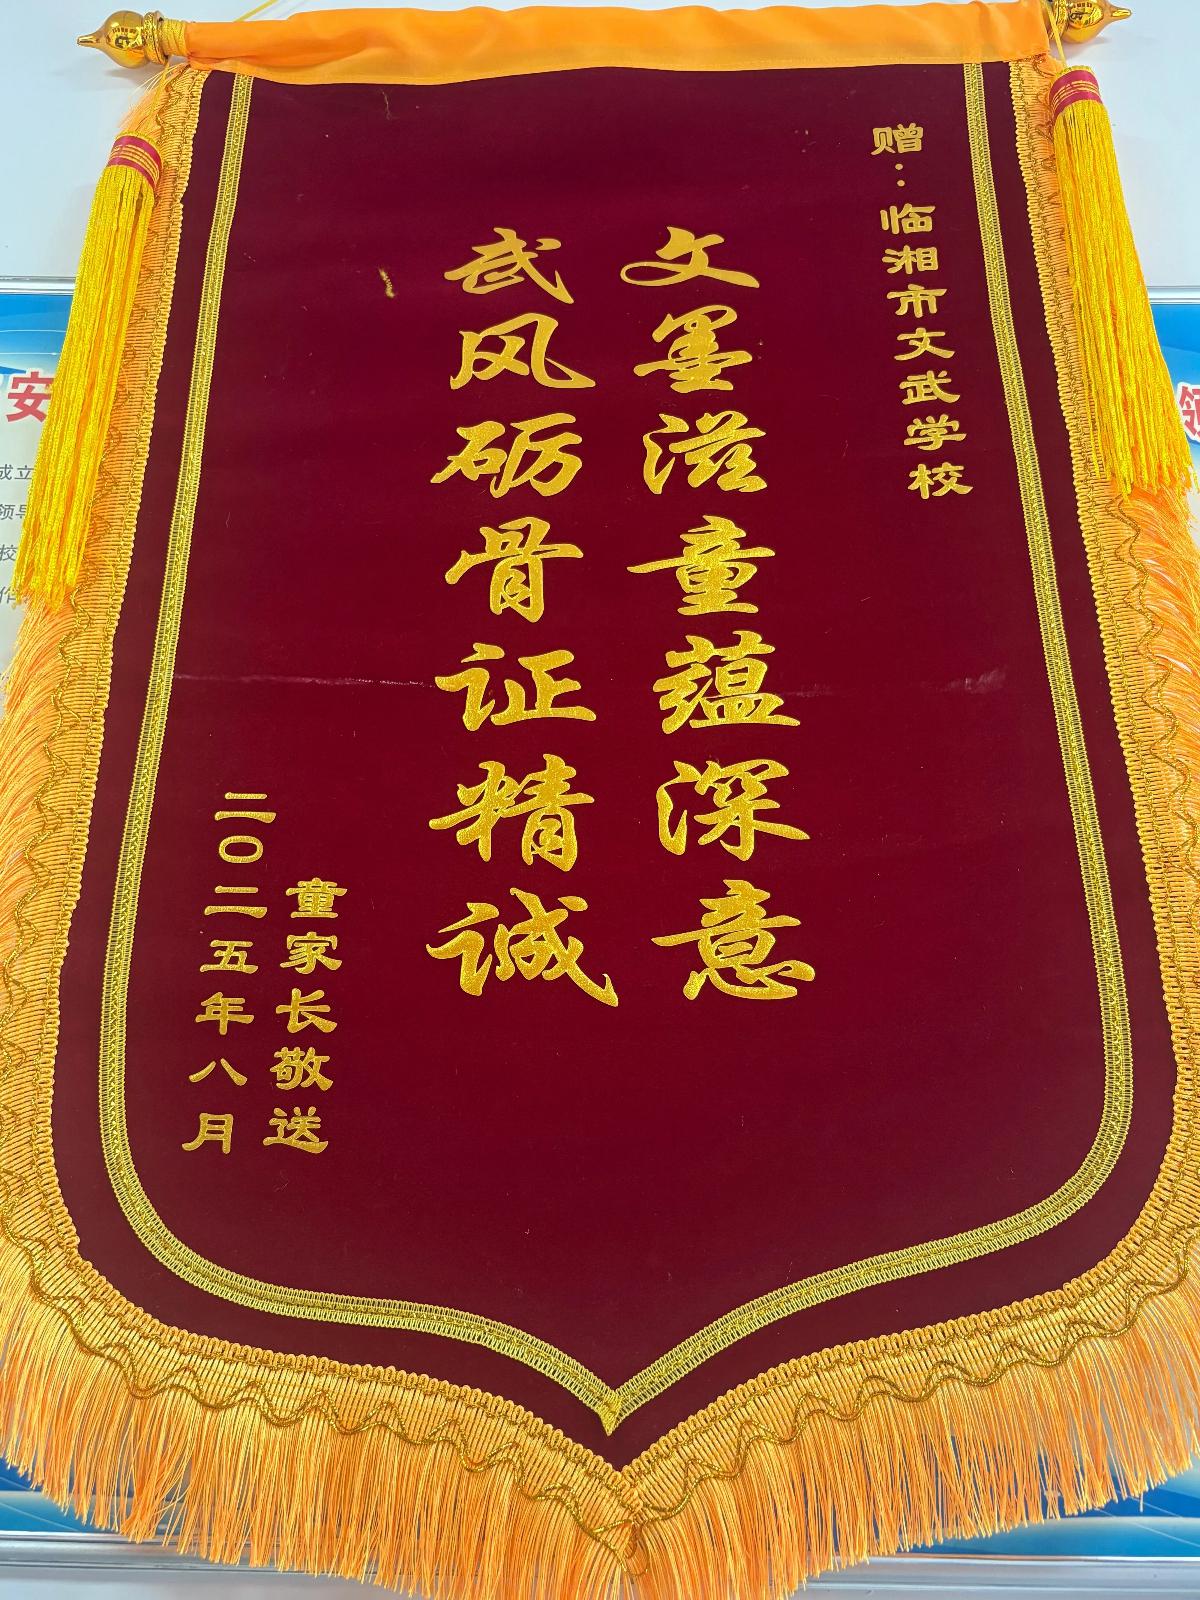 赠：临湘市文武学校
文墨滋童蕴深意
武风砺骨证精诚
童家长敬送
二〇二五年八月
安
成立
领导
校
领